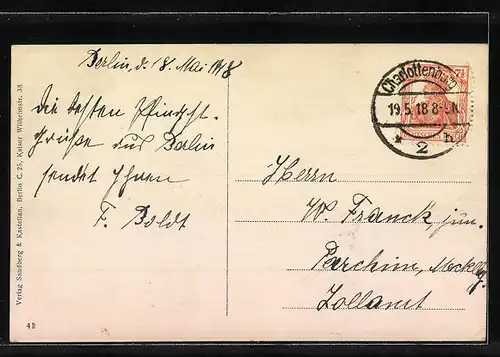 Berlin, d. 18. Mai 1918
Die besten Pfingst-
grüße aus Berlin
sendet Ihnen
F. Boldt
Charlottenburg
19.5.18 8-9N.
* 2 h
7½
Herrn
W. Franck, jun.
Parchim, Mecklbg.
Zollamt
Verlag Sandberg & Kastellan, Berlin C. 25, Kaiser Wilhelmstr. 38
41